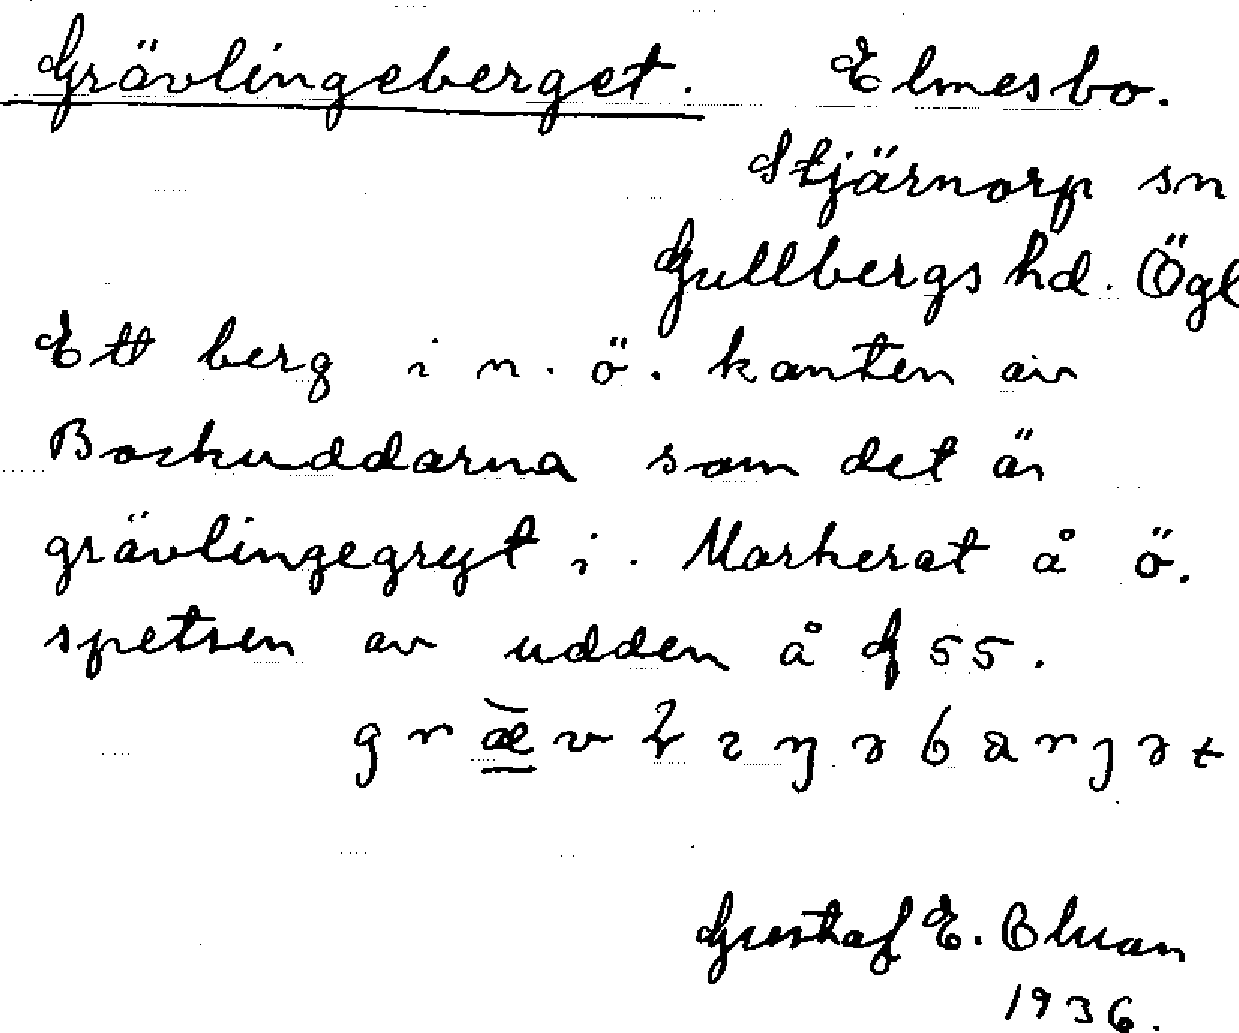 Grävlingeberget. Elmesbo.
Stjärnorp sn
Gullbergs hd. Ögl
Ett berg i n. ö. kanten av
Bockuddarna som det är
grävlingegryt i. Markerat å ö.
spetsen av udden å G 55.
Gustaf E.
1936.